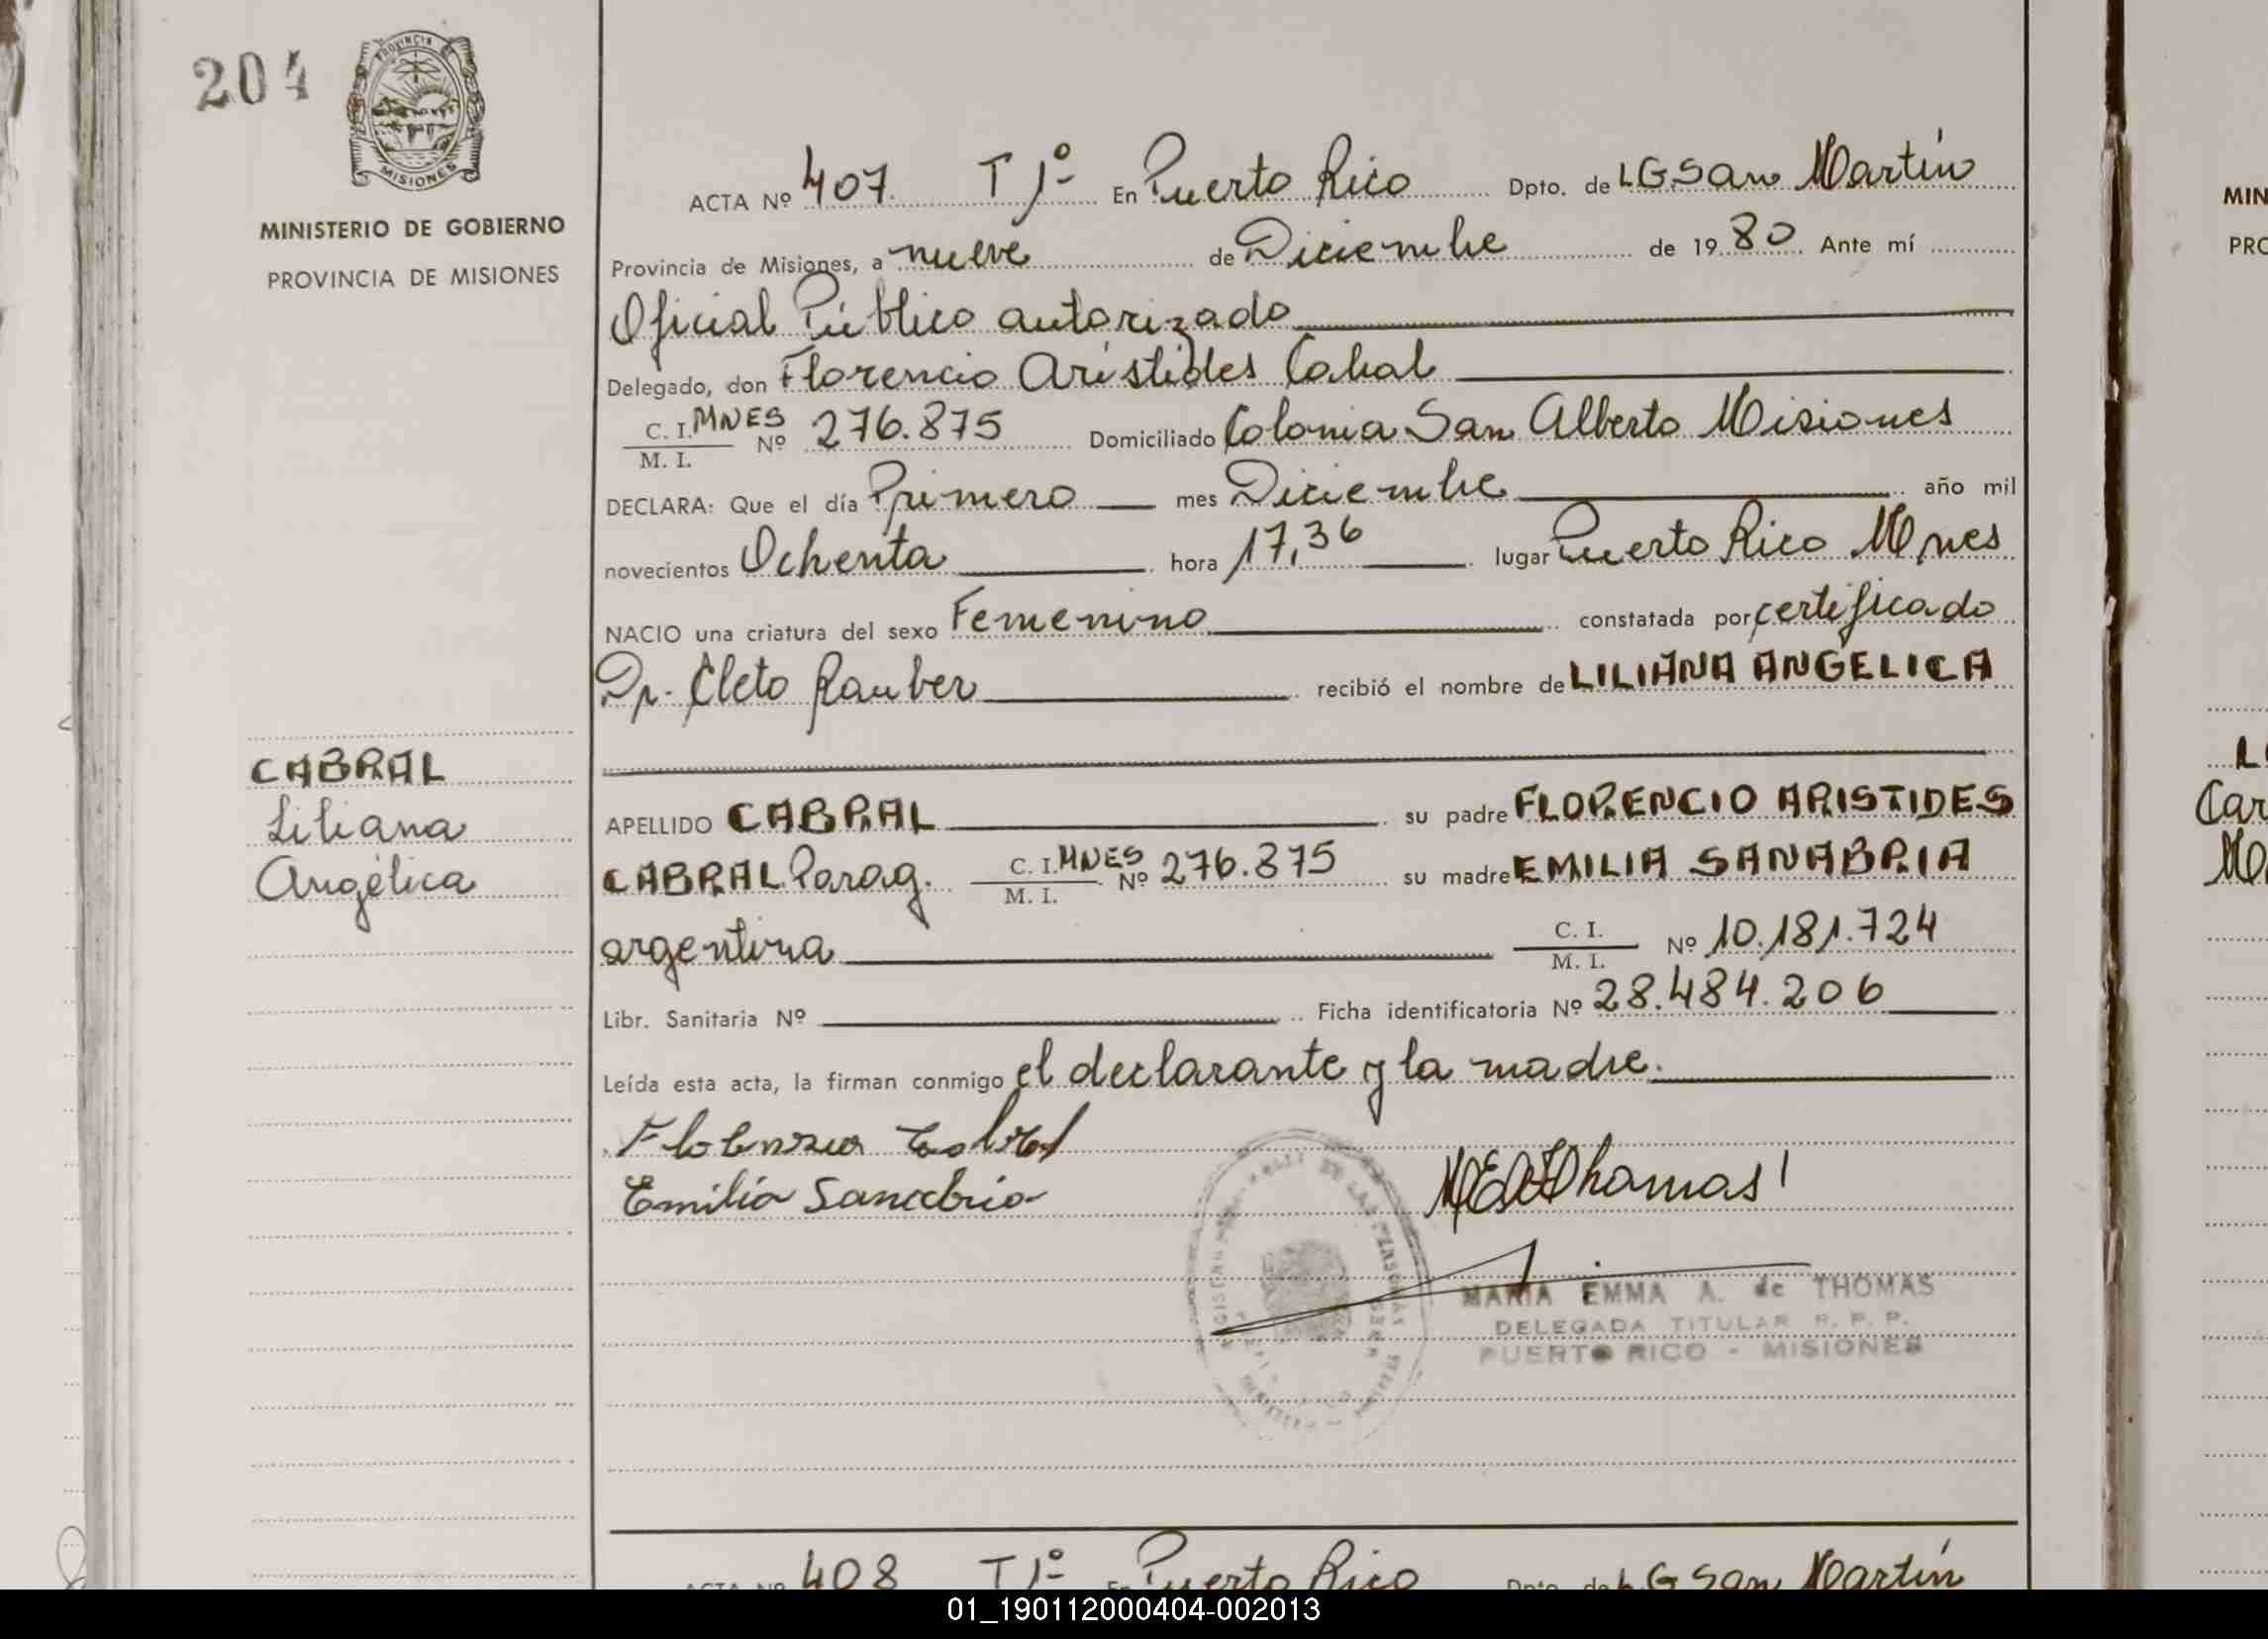 204
PROVINCIA DE
MISIONES
MINISTERIO DE GOBIERNO
PROVINCIA DE MISIONES
ACTA Nº 407. T 1º En Puerto Rico Dpto. de LGSan Martín
Provincia de Misiones, a nueve de Diciembre de 1980 Ante mí
Oficial Público autorizado
Delegado, don Florencio Arístides Cabral
C. I. MNES Nº 276.875 Domiciliado Colonia San Alberto Misiones
M. I.
DECLARA: Que el día Primero mes Diciembre año mil
novecientos Ochenta hora 17,36 lugar Puerto Rico Mnes
NACIO una criatura del sexo Femenino constatada por certificado
Dr. Cleto Rauber recibió el nombre de LILIANA ANGÉLICA
CABRAL
Liliana
Angélica
APELLIDO CABRAL su padre FLORENCIO ARISTIDES
CABRAL Parag. C. I. MNES Nº 276.875 su madre EMILIA SANABRIA
M. I.
argentina C. I. Nº 10.181.724
M. I.
Libr. Sanitaria Nº Ficha identificatoria Nº 28.484.206
Leída esta acta, la firman conmigo el declarante y la madre.
Emilia Sanabria
MARIA EMMA A. de THOMAS
DELEGADA TITULAR R. P. P.
PUERTO RICO - MISIONES
408 T 1º En Puerto Rico Dpto. de LG San Martín
MIN
PRO
Car
01_190112000404-002013